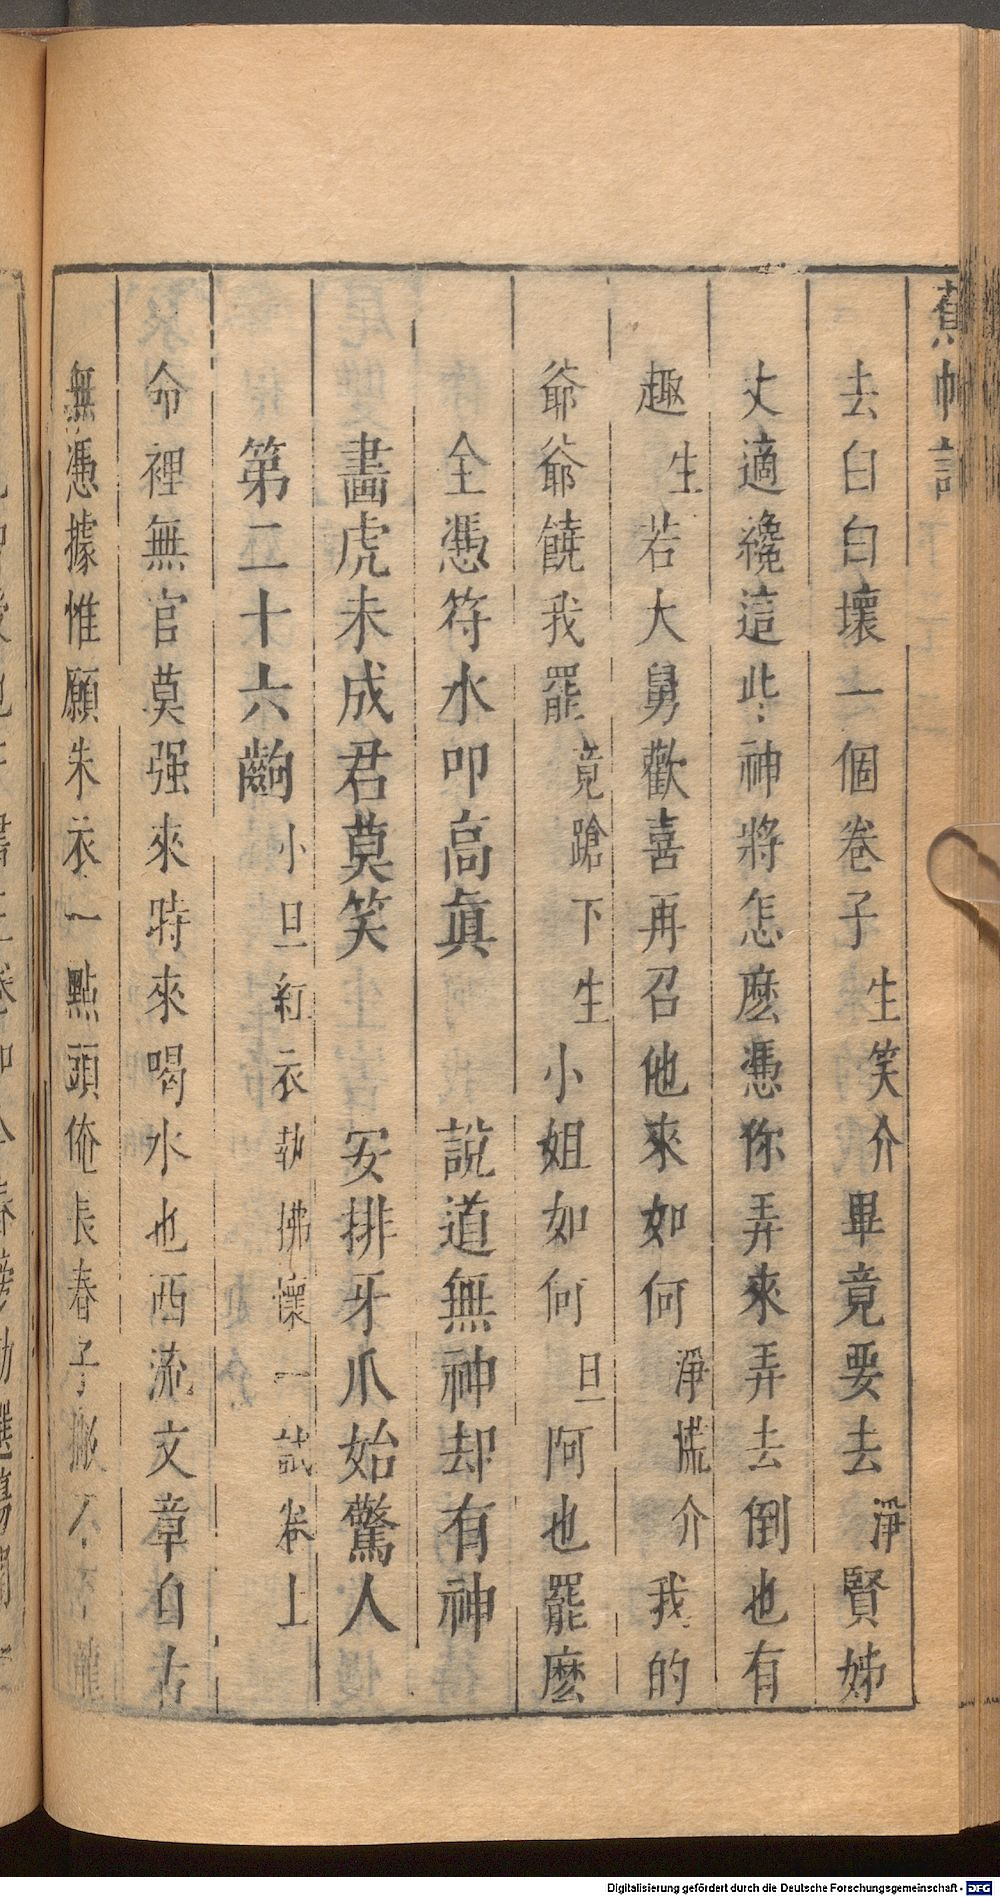 蕉帕記
去白白壞一個卷子生笑介畢竟要去淨賢姊
丈適纔這些神將怎麽憑你弄來弄去倒也有
趣生若大舅歡喜再召他來如何淨慌介我的
爺爺饒我罷竟蹌下生小姐如何旦阿也罷麽
全憑符水叩高眞　說道無神却有神
畵虎未成君莫笑　安排牙爪始驚人
第二十六齣小旦紅衣執拂懷一試卷上
命裡無官莫强來時來喝水也西流文章自古
無憑據惟願朱衣一點頭俺長春子
Digitalisierung gefördert durch die Deutsche Forschungsgemeinschaft - DFG